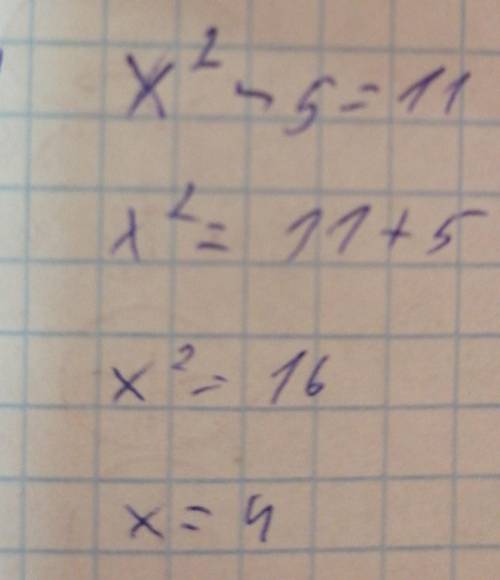 x² - 5 = 11
x² = 11 + 5
x² = 16
x = 4